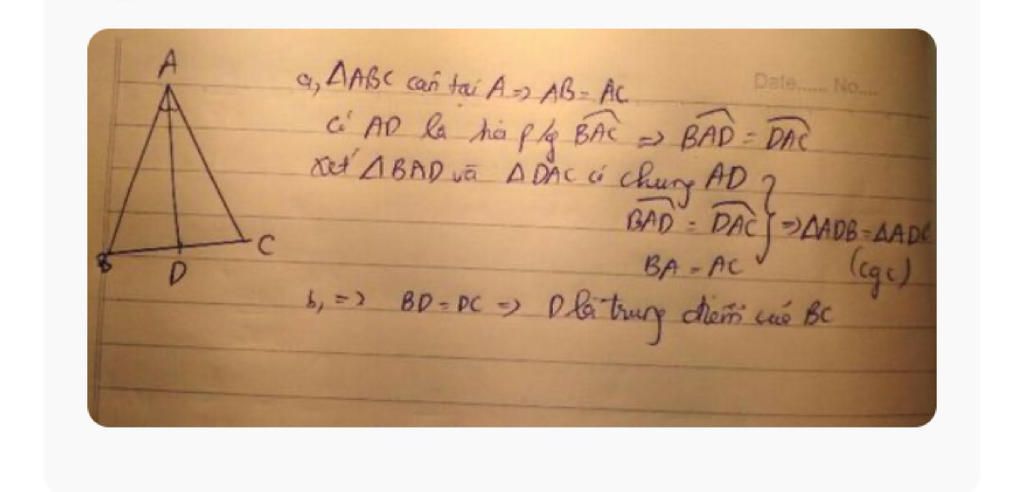 A
B
D
C
Date...... No....
a, ΔABC cân tại A => AB = AC
Có AD là tia p/g BAC => BAD = DAC
Xét ΔBAD và ΔDAC có chung AD
BAD = DAC } => ΔADB = ΔADC
BA = AC (cgc)
b, => BD = DC => D là trung điểm của BC